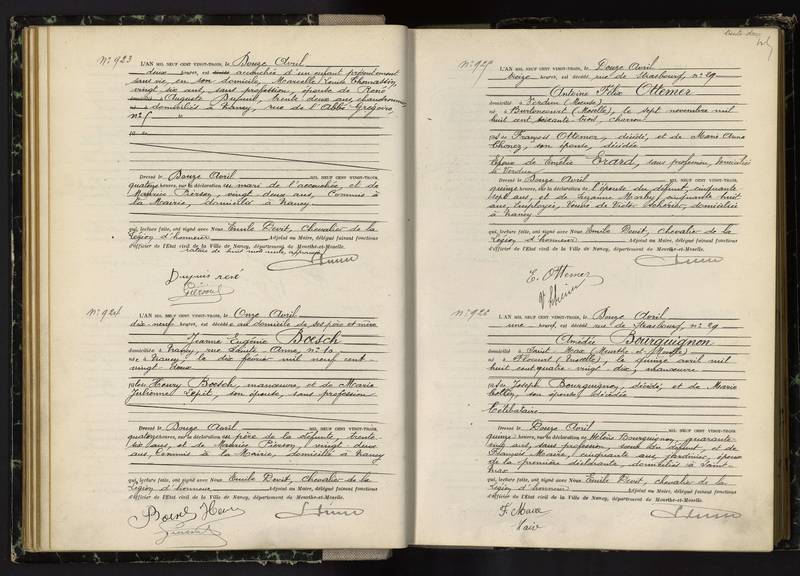 N° 923
L'AN MIL NEUF CENT VINGT-TROIS, le Douze Avril
deux heures, est accouchée d'un enfant présentement
sans vie, en son domicile, Marcelle Louise Thomassin,
vingt six ans, sans profession, épouse de René
Auguste Dupuis, trente deux ans
domiciliés à Nancy, rue de l'Abbé Grégoire
n° 5
Dressé le Douze Avril MIL NEUF CENT VINGT-TROIS,
quatorze heures, sur la déclaration du mari de l'accouchée, et de
Maurice Pierson, vingt deux ans, Commis à
la Mairie, domiciliés à Nancy
qui, lecture faite, ont signé avec Nous Emile Devit, Chevalier de la
Légion d'honneur Adjoint au Maire, délégué faisant fonctions
d'officier de l'Etat civil de la Ville de Nancy, département de Meurthe-et-Moselle.
Dupuis rené
N° 924
L'AN MIL NEUF CENT VINGT-TROIS, le Onze Avril
dix-neuf heures, est décédée au domicile de ses père et mère
Jeanne Eugénie Boesch
domiciliée à Nancy, rue Sainte Anne, n° 10
née à Nancy, le dix février mil neuf cent
vingt-deux
fille de Henry Boesch, manœuvre, et de Marie
Julienne Lepit, son épouse, sans profession
Dressé le Douze Avril MIL NEUF CENT VINGT-TROIS,
quatorze heures, sur la déclaration du père de la défunte, trente
six ans, et de Maurice Pierson, vingt deux
ans, Commis à la Mairie, domiciliés à Nancy
qui, lecture faite, ont signé avec Nous Emile Devit, chevalier de la
Légion d'honneur Adjoint au Maire, délégué faisant fonctions
d'officier de l'Etat civil de la Ville de Nancy, département de Meurthe-et-Moselle.
N° 925
L'AN MIL NEUF CENT VINGT-TROIS, le Douze Avril
treize heures, est décédé rue de Strasbourg, n° 29
Antoine Félix Ottemer
domicilié à Verdun (Meuse)
né à Burlioncourt (Moselle), le sept novembre mil
huit cent soixante trois, charron
fils de François Ottemer, décédé, et de Marie Anne
Chonez, son épouse, décédée
Epoux de Emélie Erard, sans profession, domiciliée
à Verdun
Dressé le Douze Avril MIL NEUF CENT VINGT-TROIS,
quinze heures, sur la déclaration de l'épouse du défunt, cinquante
sept ans, et de Suzanne Marby, cinquante huit
ans, employée, Veuve de Victor Scherier, domiciliée
à Nancy
qui, lecture faite, ont signé avec Nous Emile Devit, Chevalier de la
Légion d'honneur Adjoint au Maire, délégué faisant fonctions
d'officier de l'Etat civil de la Ville de Nancy, département de Meurthe-et-Moselle.
E. Ottemer
L'AN MIL NEUF CENT VINGT-TROIS, le Douze Avril
une heure, est décédé rue de Strasbourg, n° 29
Amédée Bourguignon
domicilié à Saint-Max (Meurthe et Moselle)
né à (Moselle), le quinze avril mil
huit cent quatre vingt dix, manœuvre
fils de Joseph Bourguignon, décédé, et de Marie
son épouse, décédée
Célibataire
Dressé le Douze Avril MIL NEUF CENT VINGT-TROIS,
quinze heures, sur la déclaration de Héloïse Bourguignon, quarante
ans, sans profession, sœur du défunt, et de
François Maire, cinquante ans, jardinier, époux
de la première déclarante, domiciliés à Saint-
Max
qui, lecture faite, ont signé avec Nous Emile Devit, chevalier de la
Légion d'honneur Adjoint au Maire, délégué faisant fonctions
d'officier de l'Etat civil de la Ville de Nancy, département de Meurthe-et-Moselle.
F. Maire
Maire